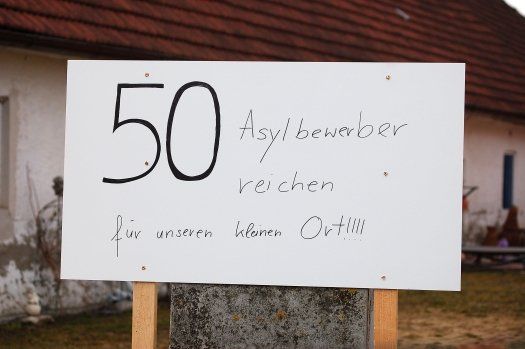 50 Asylbewerber
reichen
für unseren kleinen Ort!!!!!